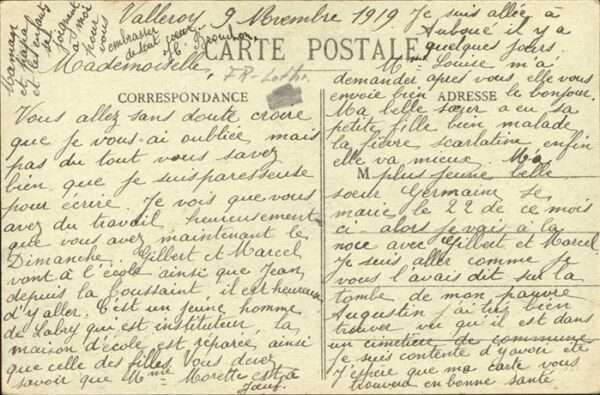 Valleroy 9 Novembre 1919
CARTE POSTALE
Mademoiselle,
CORRESPONDANCE
Vous allez sans doute croire
que je vous ai oubliée, mais
pas du tout vous savez
bien que je suis paresseuse
pour écrire. Je vois que vous
avez du travail, heureusement
que vous avez maintenant le
Dimanche. Gilbert et Marcel
vont à l'école ainsi que Jean
depuis la Toussaint, il est heureux
d'y aller. C'est un jeune homme
de Labry qui est instituteur, la
maison d'école est réparée ainsi
que celle des filles. Vous devez
savoir que Mme Morette est à
Jœuf.
Je suis allée à
Auboué il y a
quelques jours.
Mme Louise m'a
demander après vous, elle vous
envoie bien le bonjour.
ADRESSE
Ma belle sœur a eu sa
petite fille bien malade
la fièvre scarlatine, enfin
elle va mieux. Ma
M
plus jeune belle
sœur Germaine se
marie le 22 de ce mois
ci - alors je vais à la
noce avec Gilbert et Marcel.
Je suis aller comme je
vous l'avais dit sur la
tombe de mon pauvre
Augustin j'ai très bien
trouver vu qu'il est dans
un cimetière de commune
je suis contente d'y avoir été
J'espère que ma carte vous
trouvera en bonne santé
Maman
et papa
et les enfants
se
joignent
à moi
pour
vous
embrasser
de tout cœur